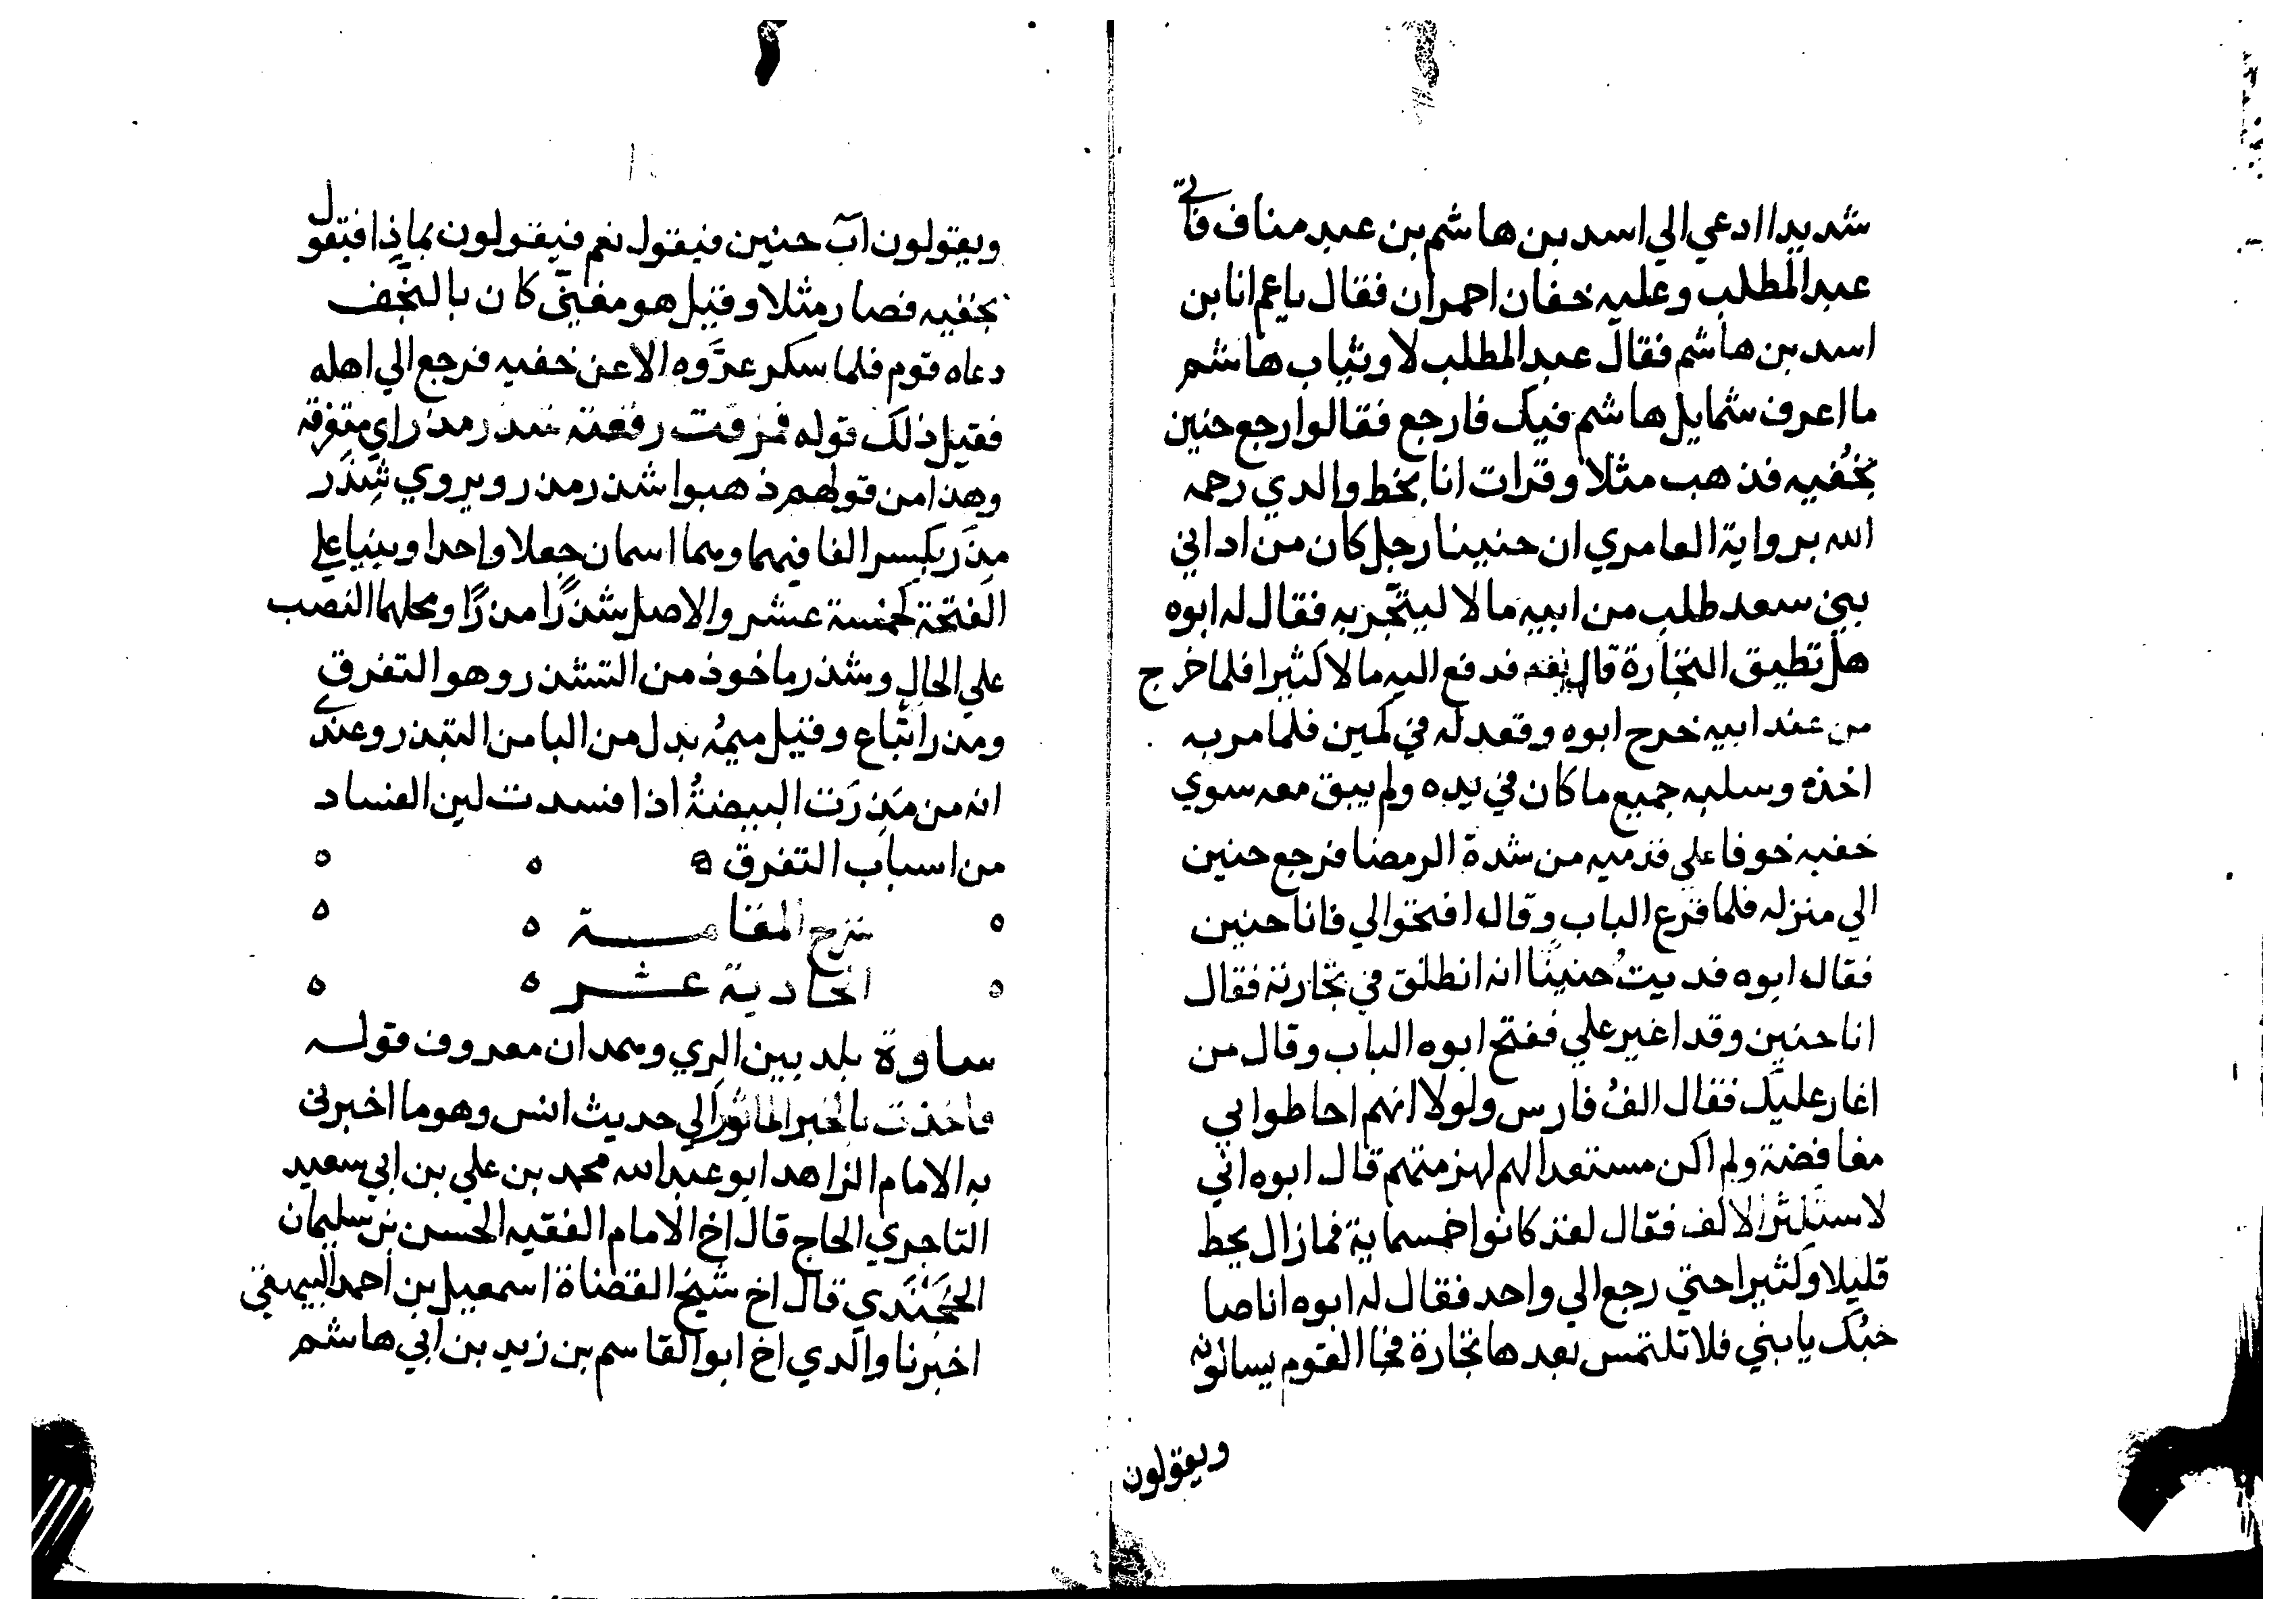 شديدا ادعي الي اسد بن هاشم بن عبد مناف فاتي
عبد المطلب وعليه خفان احمران فقال ياعم انا بن
اسد بن هاشم فقال عبد المطلب لا وثياب هاشم
ما اعرف شمايل هاشم فيك فارجع فقالوا رجع حنين
بخُفيه فذهب مثلا وقرات انا بخط والدي رحمه
الله برواية العامري ان حنينا رجل كان من اداني
بني سعد طلب من ابيه مالا ليتّجر به فقال له ابوه
هل تطيق التجارة قال فدفع اليه مالا كثيرا فلما خرج
من عند ابيه خرج ابوه وقعد له في كمين فلما مر به
اخذه وسلبه جميع ما كان في يده ولم يبق معه سوي
خفيه خوفا علي قدميه من شدة الرمضا فرجع حنين
الي منزله فلما قرع الباب وقال افتحوا لي فانا حنين
فقال ابوه فديتُ حنينًا انه انطلق في تجارته فقال
انا حنين وقد اغير علي ففتح ابوه الباب وقال من
اغار عليك فقال الفُ فارس ولولا انهم احاطوا بي
مغافضة ولم اكن مستعدا لهم لهزمتهم قال ابوه اني
لاستكثر الالف فقال لقد كانوا خمسماية فما زال يحط
قليلا وكثيرا حتي رجع الي واحد فقال له ابوه انا صا
حبُك يا بني فلا تلتمس بعدها تجارة فجا القوم يسالونه
ويقولون
ويقولون آب حنين فيقول نعم فيقولون بماذا فيقول
بخفيه فصار مثلا وقيل هو مغنّي كان بالنجف
دعاه قوم فلما سكر عرَّوه الا عن خفيه فرجع الي اهله
فقيل ذلك قوله فمزقت رقعته شذر مذر اي متفرقة
وهذا من قولهم ذهبوا شذر مذر ويروي شِذَر
مِذَر بكسر الفا فيهما وهما اسمان جعلا واحدا وبنيا علي
الفتحة كخمسة عشر والاصل شذرًا مذرًا ومحلهما النصب
علي الحال وشذر ماخوذ من التشذر وهو التفرق
ومذر اتباع وقيل ميمُه بدل من البا من التبذر وعندي
انه من مَذِرَت البيضةُ اذا فسدت لين الفساد
من اسباب التفرق ه ه ه
شرح المقامة ه ه
ه الحادية عشر ه ه
ساوة بلد بين الري وهمدان معروف قوله
فاخذت بالخبر الماثور الي حديث انس وهو ما اخبرني
به الامام الزاهد ابو عبد الله محمد بن علي بن ابي سعيد
التاجري الحاج قال اخ الامام الفقيه الحسن بن سليمان
الخُجَنْدي قال اخ شيخ القضاة اسمعيل بن احمد البيهقي
اخبرنا والدي اخ ابو القاسم بن زيد بن ابي هاشم